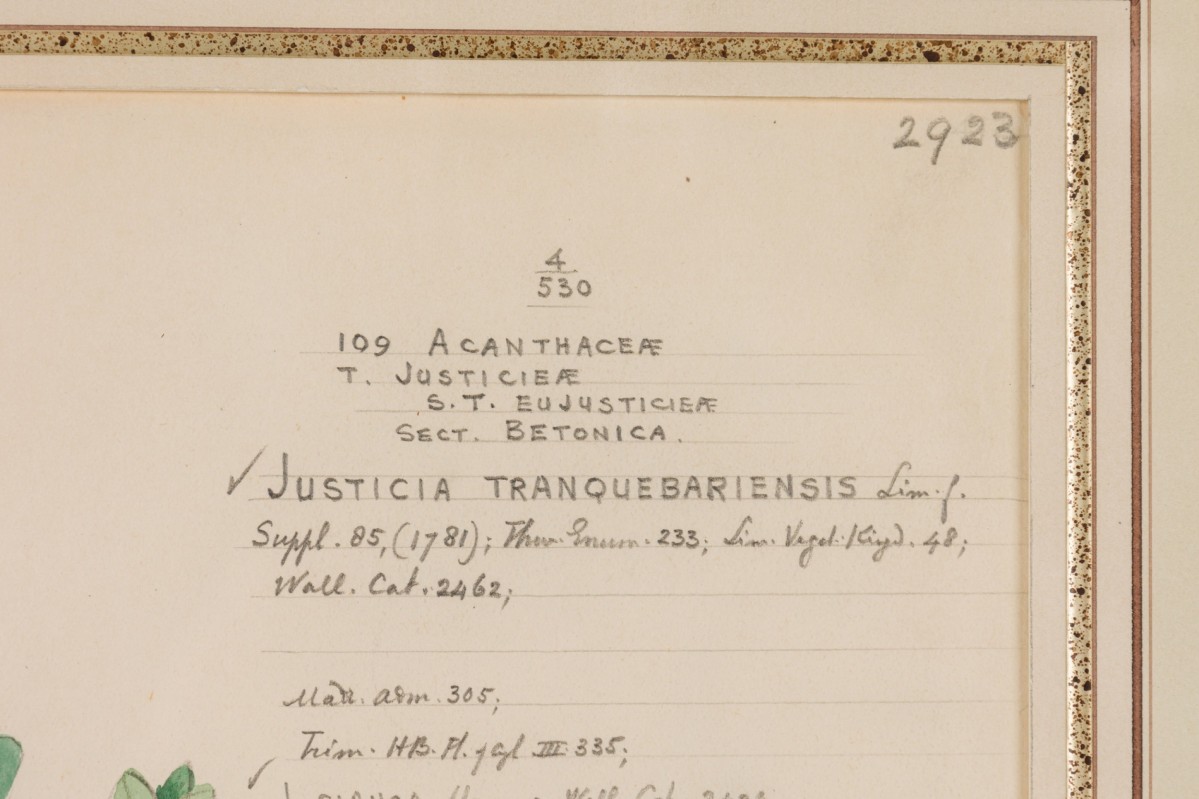 2923
4
530
109 ACANTHACEÆ
T. JUSTICIEÆ
S.T. EUJUSTICIEÆ
SECT. BETONICA.
✓ JUSTICIA TRANQUEBARIENSIS Linn. f.
Suppl. 85, (1781); Thw. Enum. 233; Lin. Veget. Kingd. 48;
Wall. Cat. 2462;
Mad. adm. 305;
Trim. HB. Fl. Ceyl III 335;
Wall. Cat.